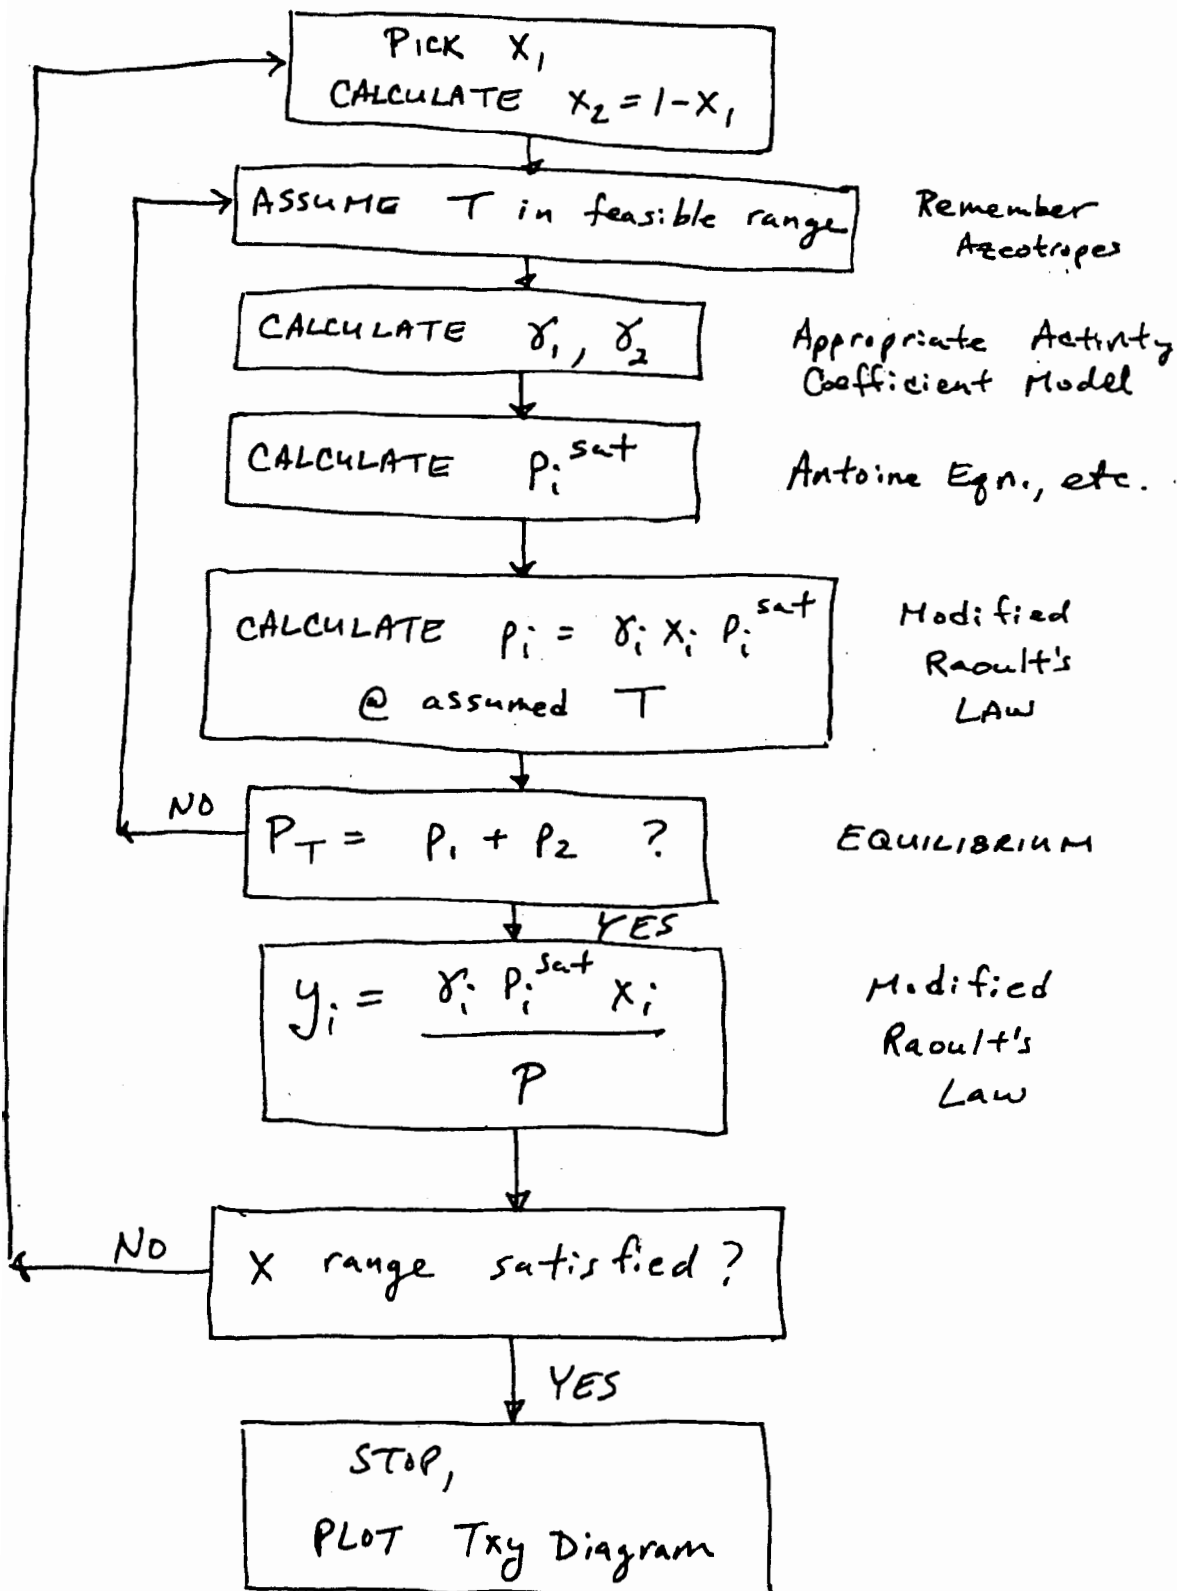 PICK x₁
CALCULATE x₂ = 1 - x₁
ASSUME T in feasible range
Remember
Azeotropes
CALCULATE γ₁, γ₂
Appropriate Activity
Coefficient Model
CALCULATE Pᵢ^sat
Antoine Eqn., etc.
CALCULATE pᵢ = γᵢ xᵢ Pᵢ^sat
@ assumed T
Modified
Raoult's
LAW
NO
P_T = p₁ + p₂ ?
EQUILIBRIUM
YES
yᵢ = γᵢ Pᵢ^sat xᵢ
P
Modified
Raoult's
Law
NO
X range satisfied?
YES
STOP,
PLOT Txy Diagram